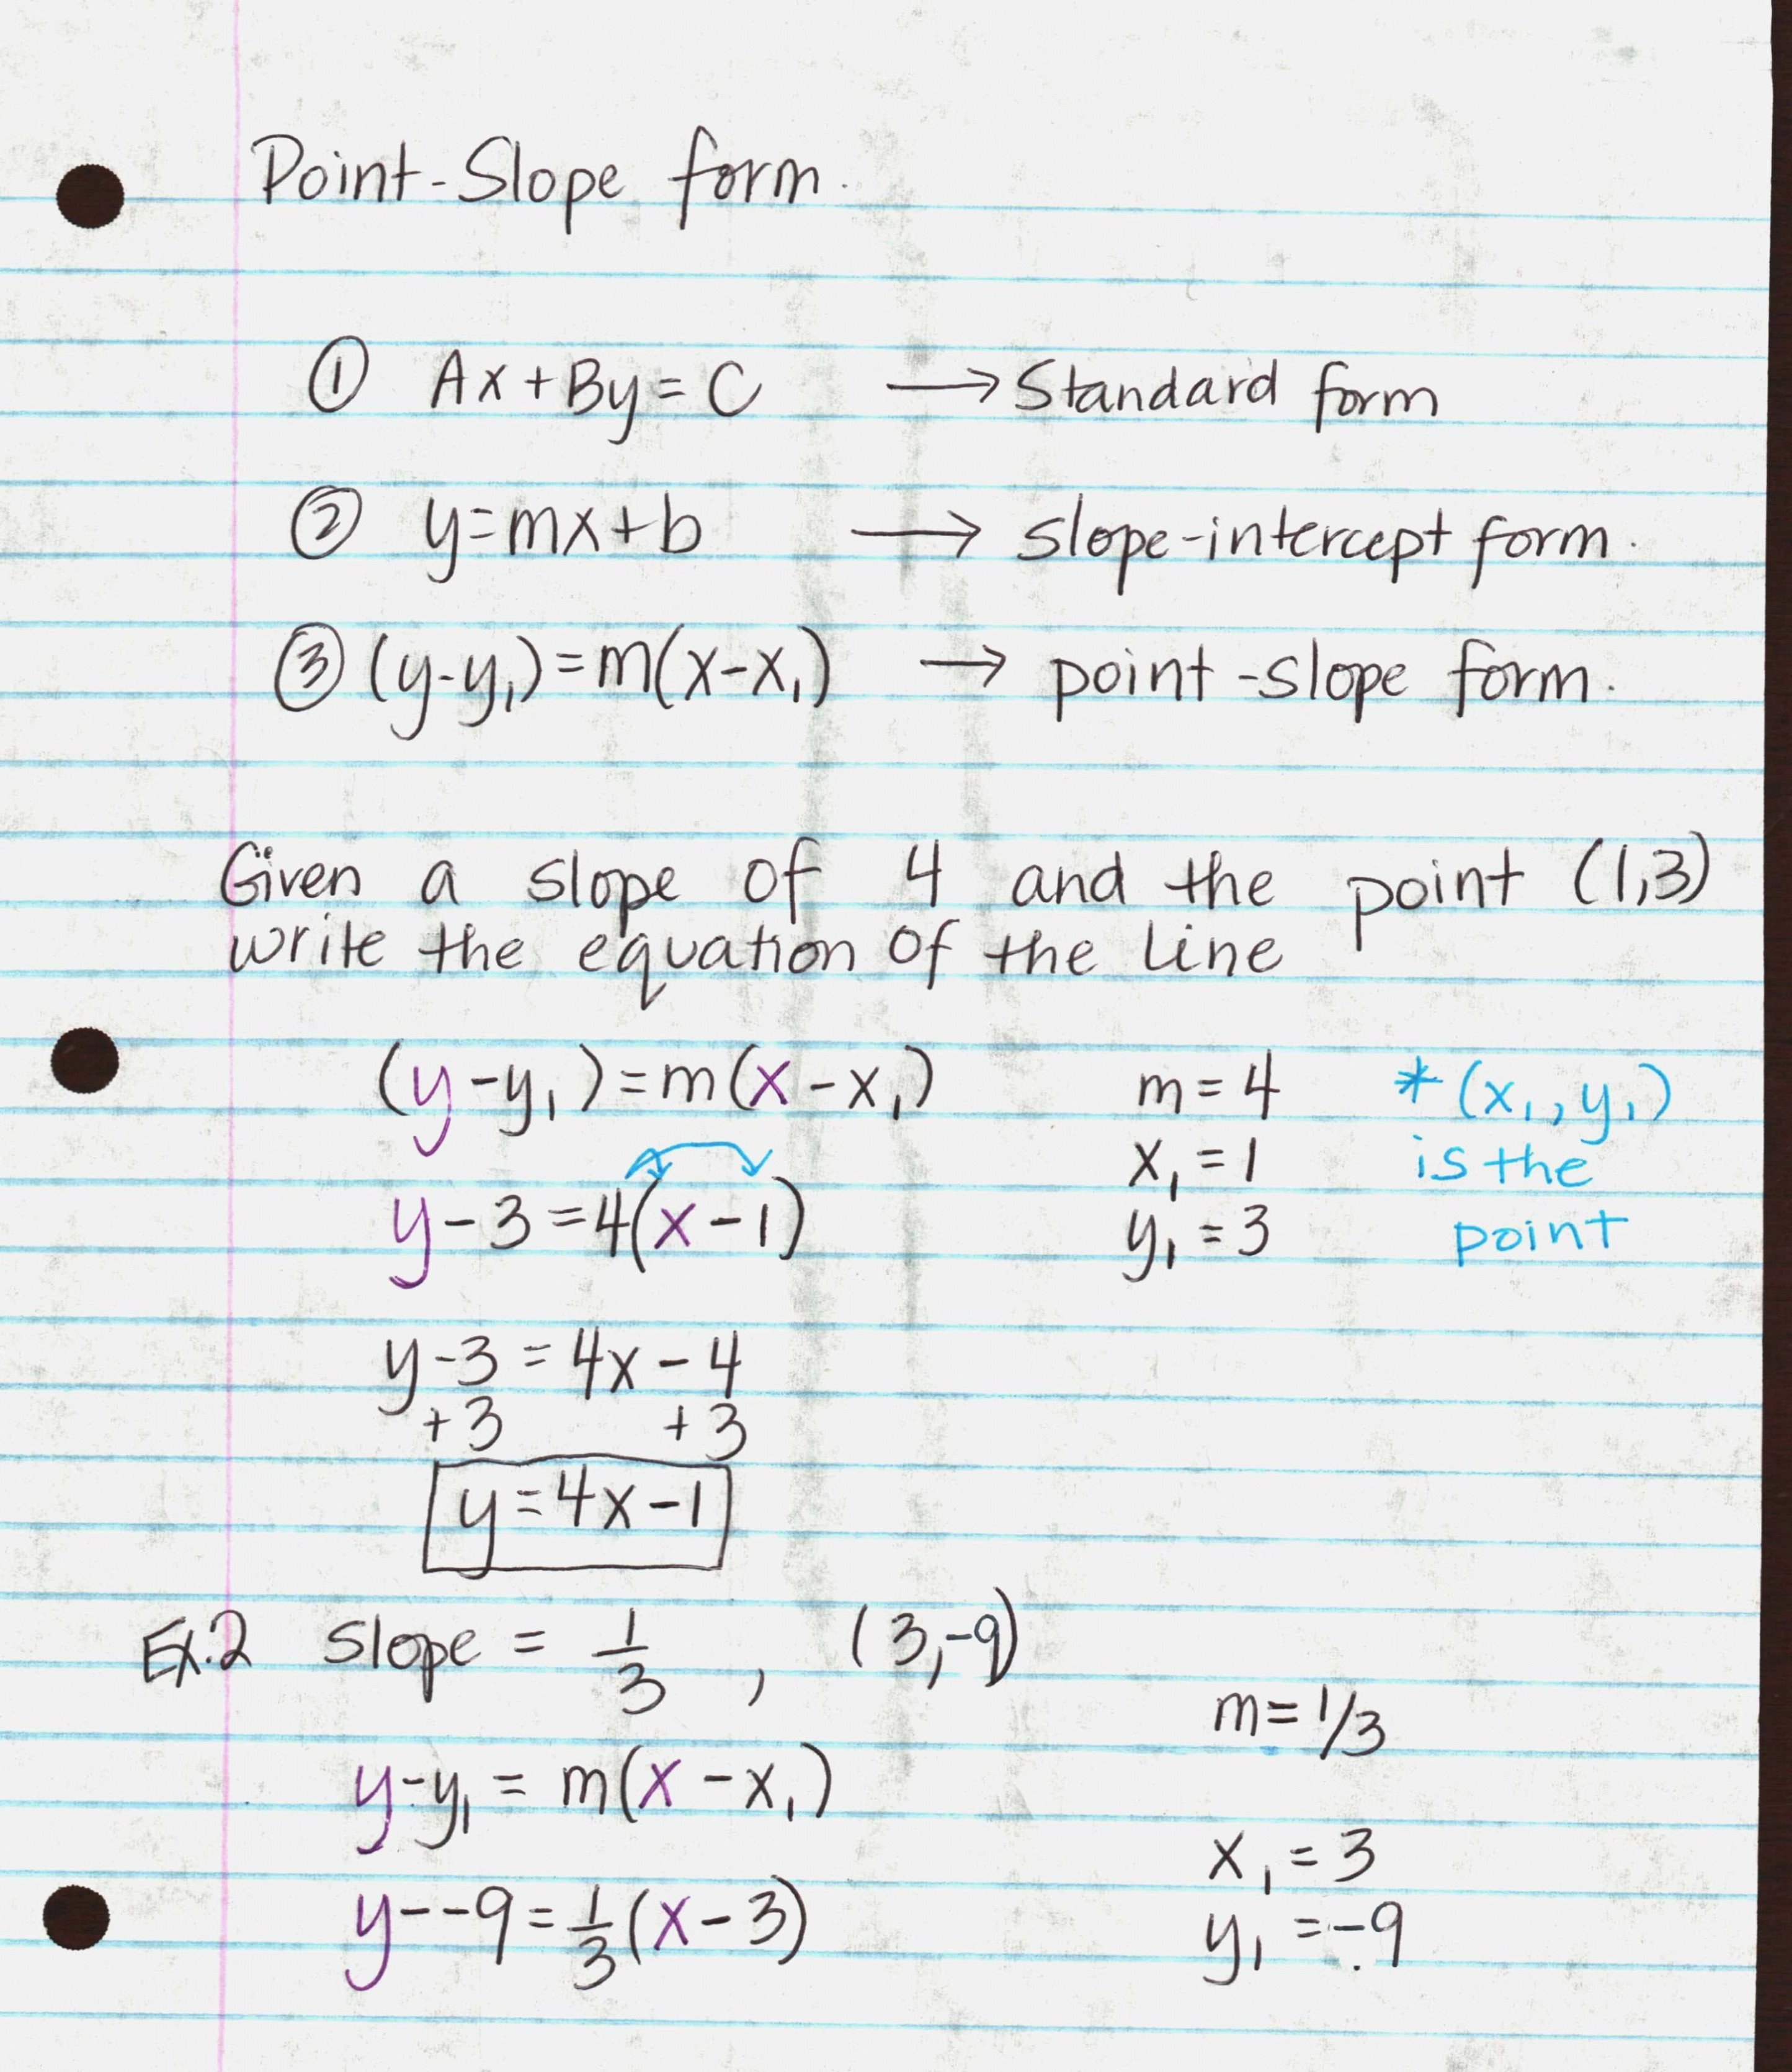 Point-Slope form.
① Ax+By=C → Standard form
② y=mx+b → slope-intercept form.
③ (y-y₁)=m(x-x₁) → point-slope form.
Given a slope of 4 and the point (1,3)
write the equation of the line
(y-y₁)=m(x-x₁) m=4 *(x₁,y₁)
x₁=1 is the
y-3=4(x-1) y₁=3 point
y-3=4x-4
+3 +3
y=4x-1
Ex.2 slope = 1/3 , (3,-9)
m=1/3
y-y₁=m(x-x₁)
x₁=3
y--9=1/3(x-3) y₁=-9